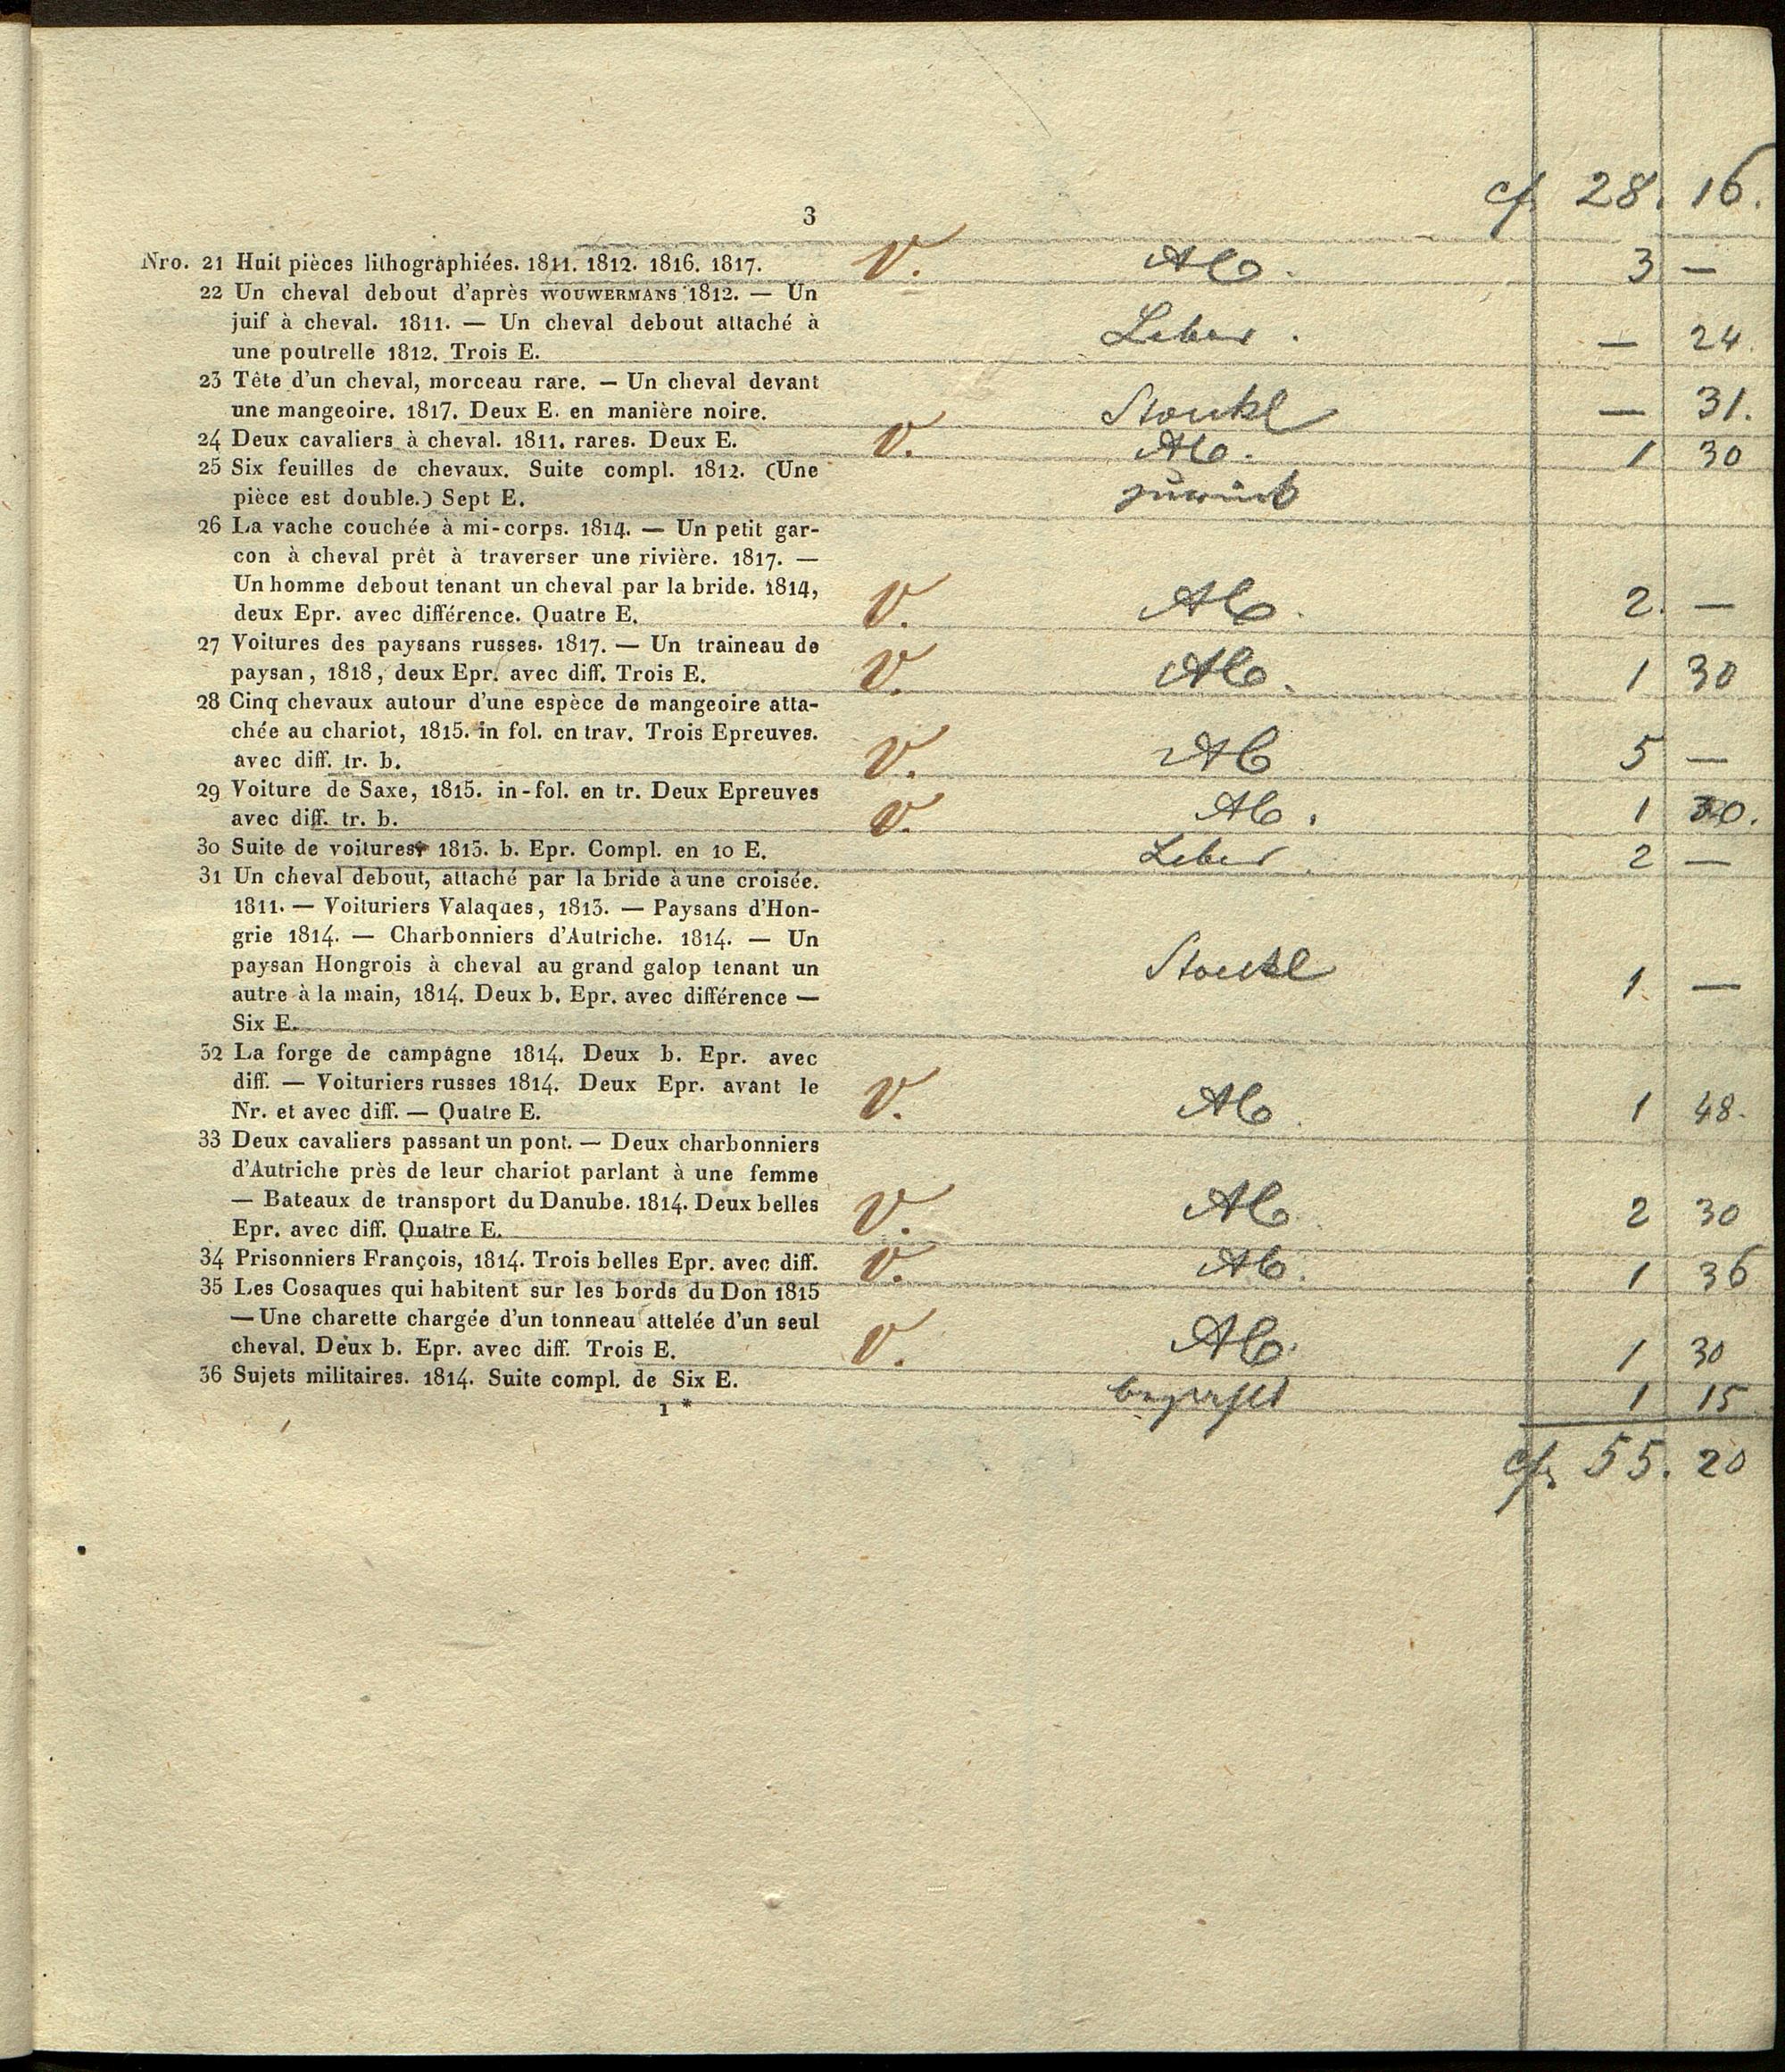 cf. 28. 16.
3
Nro. 21 Huit pièces lithographiées. 1811. 1812. 1816. 1817. V. 3 —
22 Un cheval debout d'après WOUWERMANS 1812. — Un
juif à cheval. 1811. — Un cheval debout attaché à
une poutrelle 1812. Trois E. — 24.
23 Tête d'un cheval, morceau rare. — Un cheval devant
une mangeoire. 1817. Deux E. en manière noire. Stoeckl — 31.
24 Deux cavaliers à cheval. 1811. rares. Deux E. V. 1 30
25 Six feuilles de chevaux. Suite compl. 1812. (Une
pièce est double.) Sept E. zurück
26 La vache couchée à mi-corps. 1814. — Un petit gar-
con à cheval prêt à traverser une rivière. 1817. —
Un homme debout tenant un cheval par la bride. 1814,
deux Epr. avec différence. Quatre E. V. 2. —
27 Voitures des paysans russes. 1817. — Un traineau de
paysan, 1818, deux Epr. avec diff. Trois E. V. 1 30
28 Cinq chevaux autour d'une espèce de mangeoire atta-
chée au chariot, 1815. in fol. en trav. Trois Epreuves.
avec diff. tr. b. V. 5 —
29 Voiture de Saxe, 1815. in-fol. en tr. Deux Epreuves
avec diff. tr. b. V. 1
30 Suite de voitures 1813. b. Epr. Compl. en 10 E. 2 —
31 Un cheval debout, attaché par la bride à une croisée.
1811. — Voituriers Valaques, 1813. — Paysans d'Hon-
grie 1814. — Charbonniers d'Autriche. 1814. — Un
paysan Hongrois à cheval au grand galop tenant un
autre à la main, 1814. Deux b. Epr. avec différence —
Six E. Stoeckl 1. —
32 La forge de campagne 1814. Deux b. Epr. avec
diff. — Voituriers russes 1814. Deux Epr. avant le
Nr. et avec diff. — Quatre E. V. 1 48.
33 Deux cavaliers passant un pont. — Deux charbonniers
d'Autriche près de leur chariot parlant à une femme
— Bateaux de transport du Danube. 1814. Deux belles
Epr. avec diff. Quatre E. V. 2 30
34 Prisonniers François, 1814. Trois belles Epr. avec diff. V. 1 36
35 Les Cosaques qui habitent sur les bords du Don 1815
— Une charette chargée d'un tonneau attelée d'un seul
cheval. Deux b. Epr. avec diff. Trois E. V. 1 30
36 Sujets militaires. 1814. Suite compl. de Six E. 1 15
1 *
cf. 55. 20